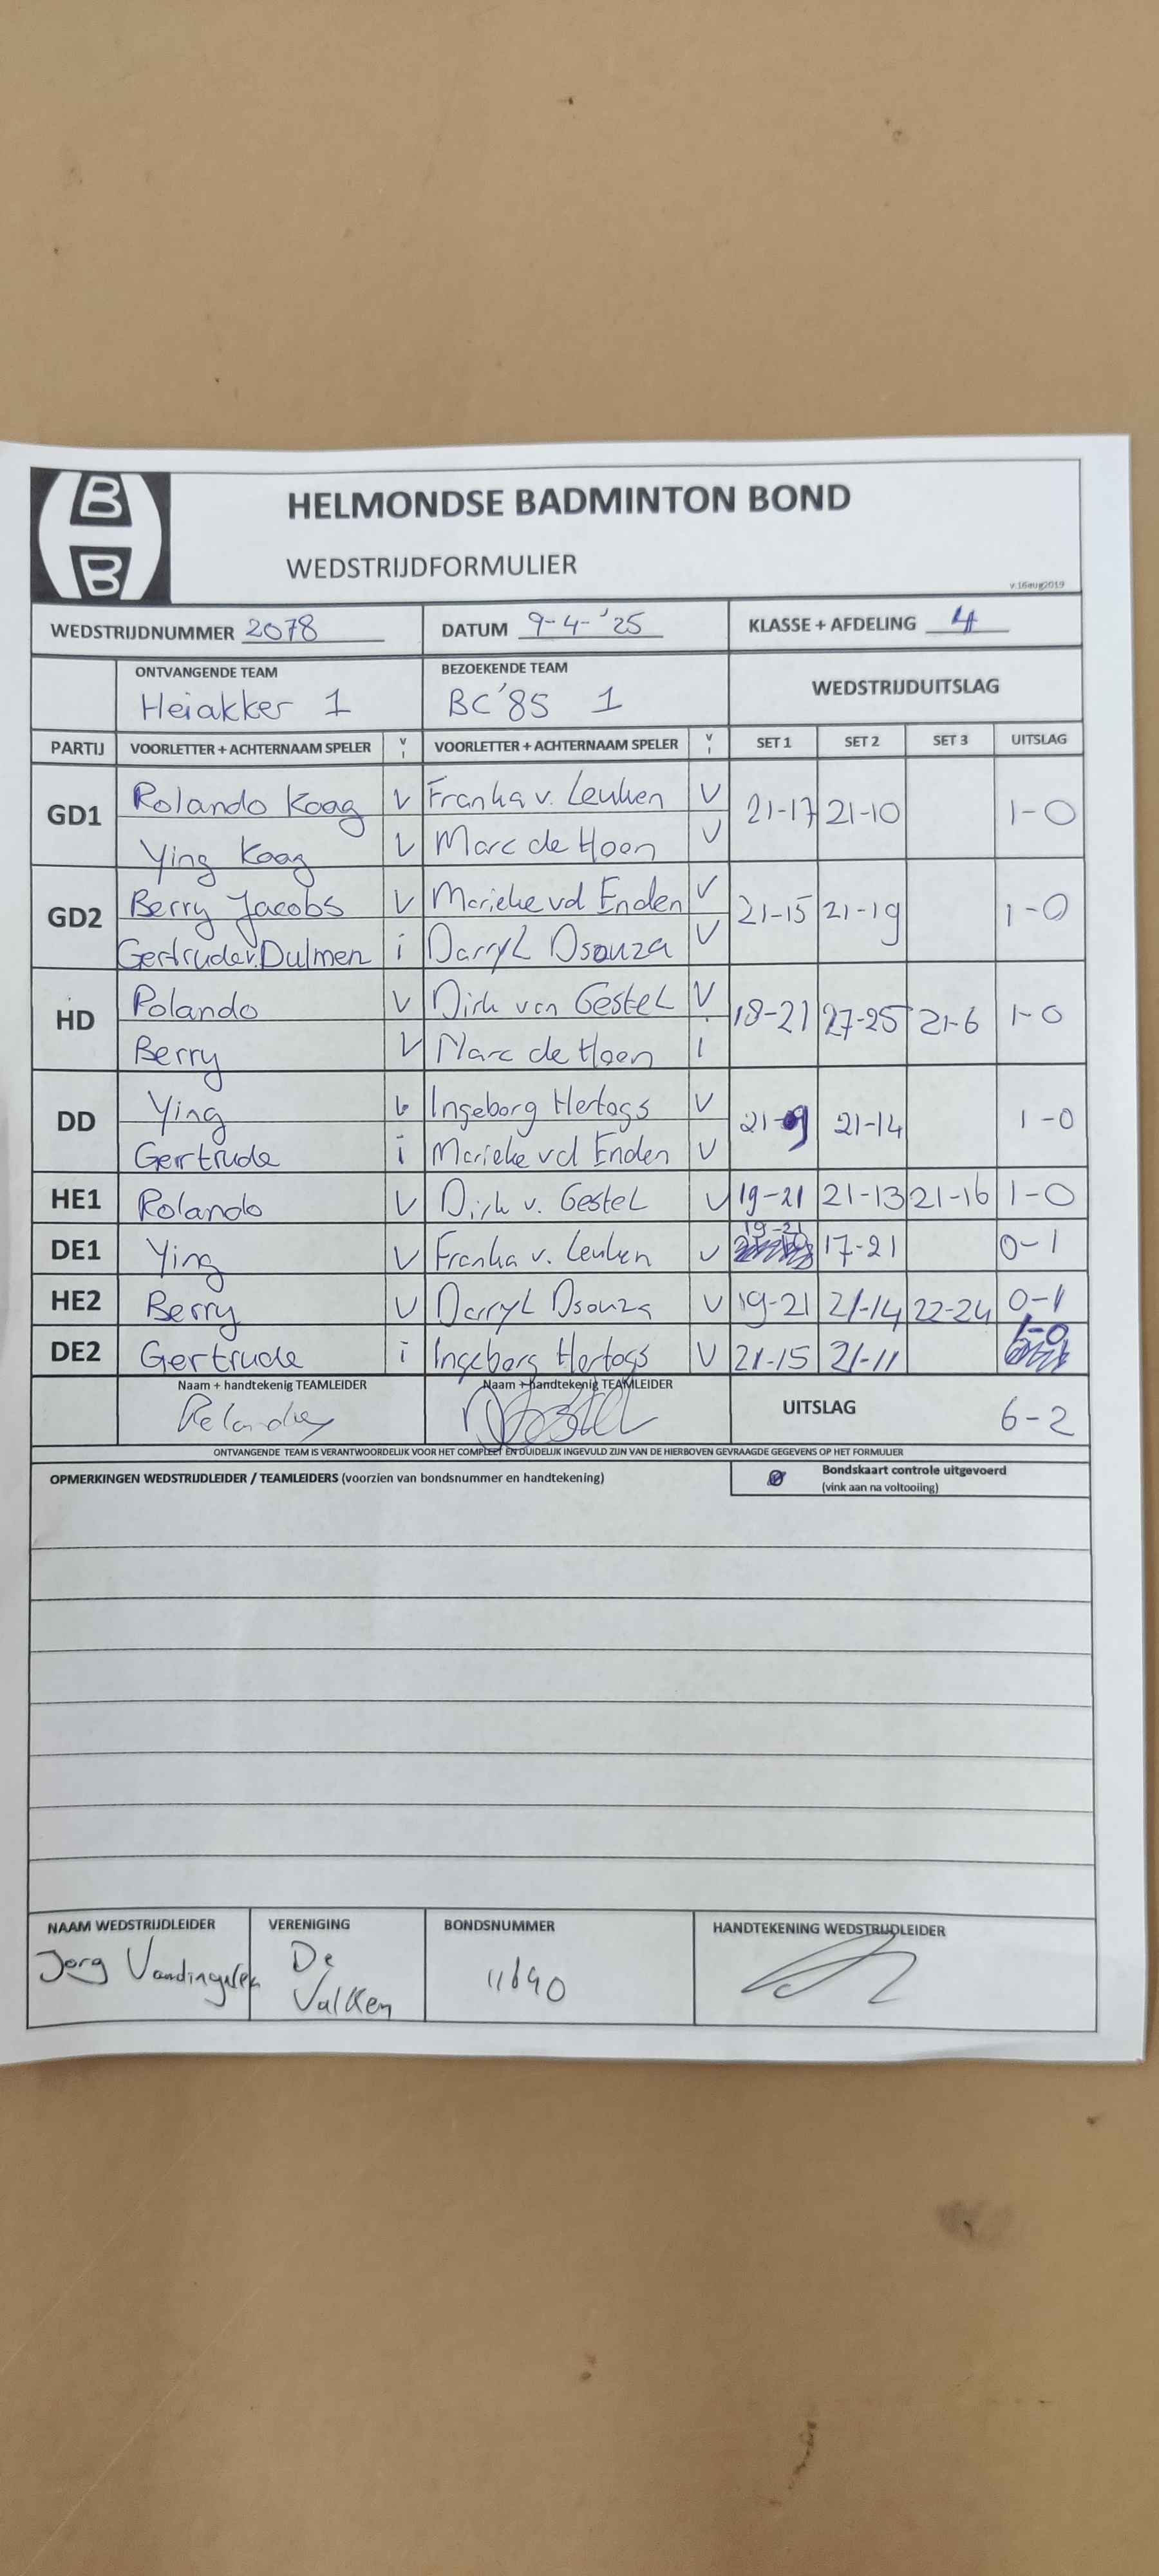 B
B
HELMONDSE BADMINTON BOND
WEDSTRIJDFORMULIER
v.16aug2019
WEDSTRIJDNUMMER 2078 DATUM 9-4-'25 KLASSE + AFDELING 4
ONTVANGENDE TEAM BEZOEKENDE TEAM WEDSTRIJDUITSLAG
Heiakker 1 BC'85 1
PARTIJ VOORLETTER + ACHTERNAAM SPELER V I VOORLETTER + ACHTERNAAM SPELER V I SET 1 SET 2 SET 3 UITSLAG
GD1 Rolando Kaag V Franka v. Leuken V 21-17 21-10 1-0
Ying Kaag V Marc de Hoon V
GD2 Berry Jacobs V Marieke vd Enden V 21-15 21-19 1-0
Gertrude v. Dulmen i Darryl Dsouza V
HD Rolando V Dirk van Gestel V 18-21 27-25 21-6 1-0
Berry V Marc de Hoon i
DD Ying V Ingeborg Hertogs V 21-9 21-14 1-0
Gertrude i Marieke vd Enden V
HE1 Rolando V Dirk v. Gestel V 19-21 21-13 21-16 1-0
DE1 Ying V Franka v. Leuken V 19-21 17-21 0-1
HE2 Berry V Darryl Dsouza V 19-21 21-14 22-24 0-1
DE2 Gertrude i Ingeborg Hertogs V 21-15 21-11 1-0
Naam + handtekenig TEAMLEIDER Naam + handtekenig TEAMLEIDER UITSLAG 6-2
ONTVANGENDE TEAM IS VERANTWOORDELIJK VOOR HET COMPLEET EN DUIDELIJK INGEVULD ZIJN VAN DE HIERBOVEN GEVRAAGDE GEGEVENS OP HET FORMULIER
OPMERKINGEN WEDSTRIJDLEIDER / TEAMLEIDERS (voorzien van bondsnummer en handtekening) Bondskaart controle uitgevoerd
(vink aan na voltooiing)
NAAM WEDSTRIJDLEIDER VERENIGING BONDSNUMMER HANDTEKENING WEDSTRIJDLEIDER
Jorg De 11690
Valken